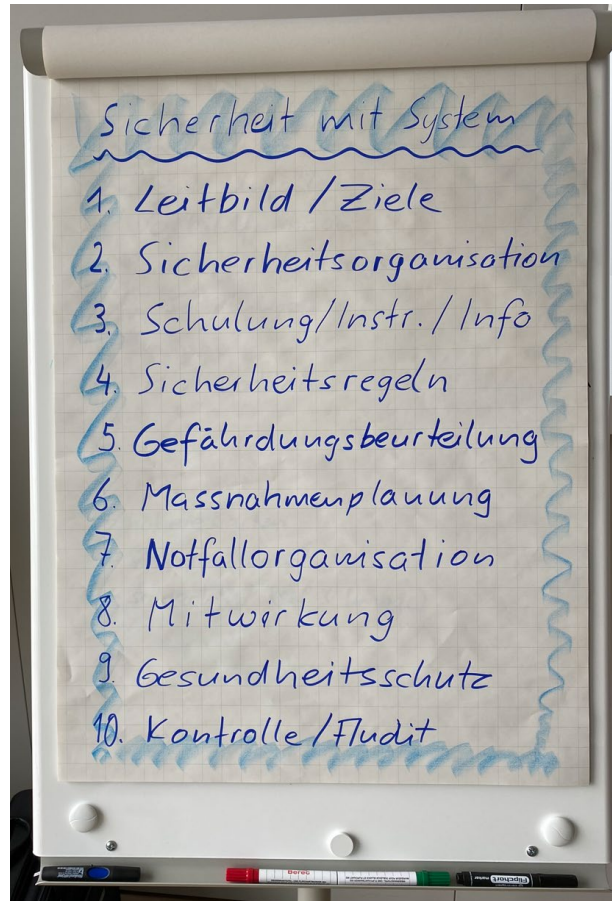 Sicherheit mit System
1. Leitbild / Ziele
2. Sicherheitsorganisation
3. Schulung/Instr. / Info
4. Sicherheitsregeln
5. Gefährdungsbeurteilung
6. Massnahmenplanung
7. Notfallorganisation
8. Mitwirkung
9. Gesundheitsschutz
10. Kontrolle / Audit
Berec
Flipchart
marker